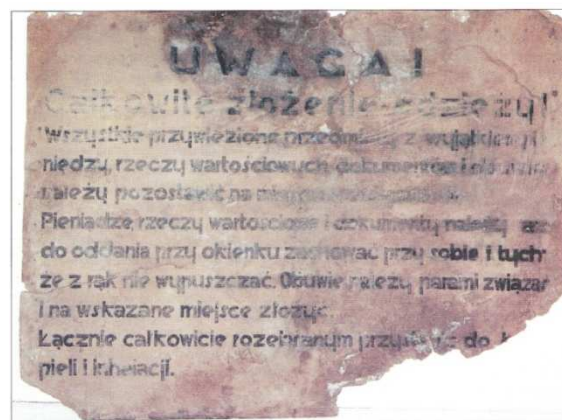 UWAGA!
Całkowite złożenie odzieży!
Wszystkie przywiezione przedmioty z wyjątkiem
niędzy, rzeczy wartościowych, dokumentów i
należy pozostawić na
Pieniądze, rzeczy wartościowe i dokumenty należy
do oddania przy okienku zachować przy sobie i tych
że z rąk nie wypuszczać. Obuwie należy parami związać
i na wskazane miejsce złożyć.
Łącznie całkowicie rozebranym przystąpić do
pieli i inhelacji.